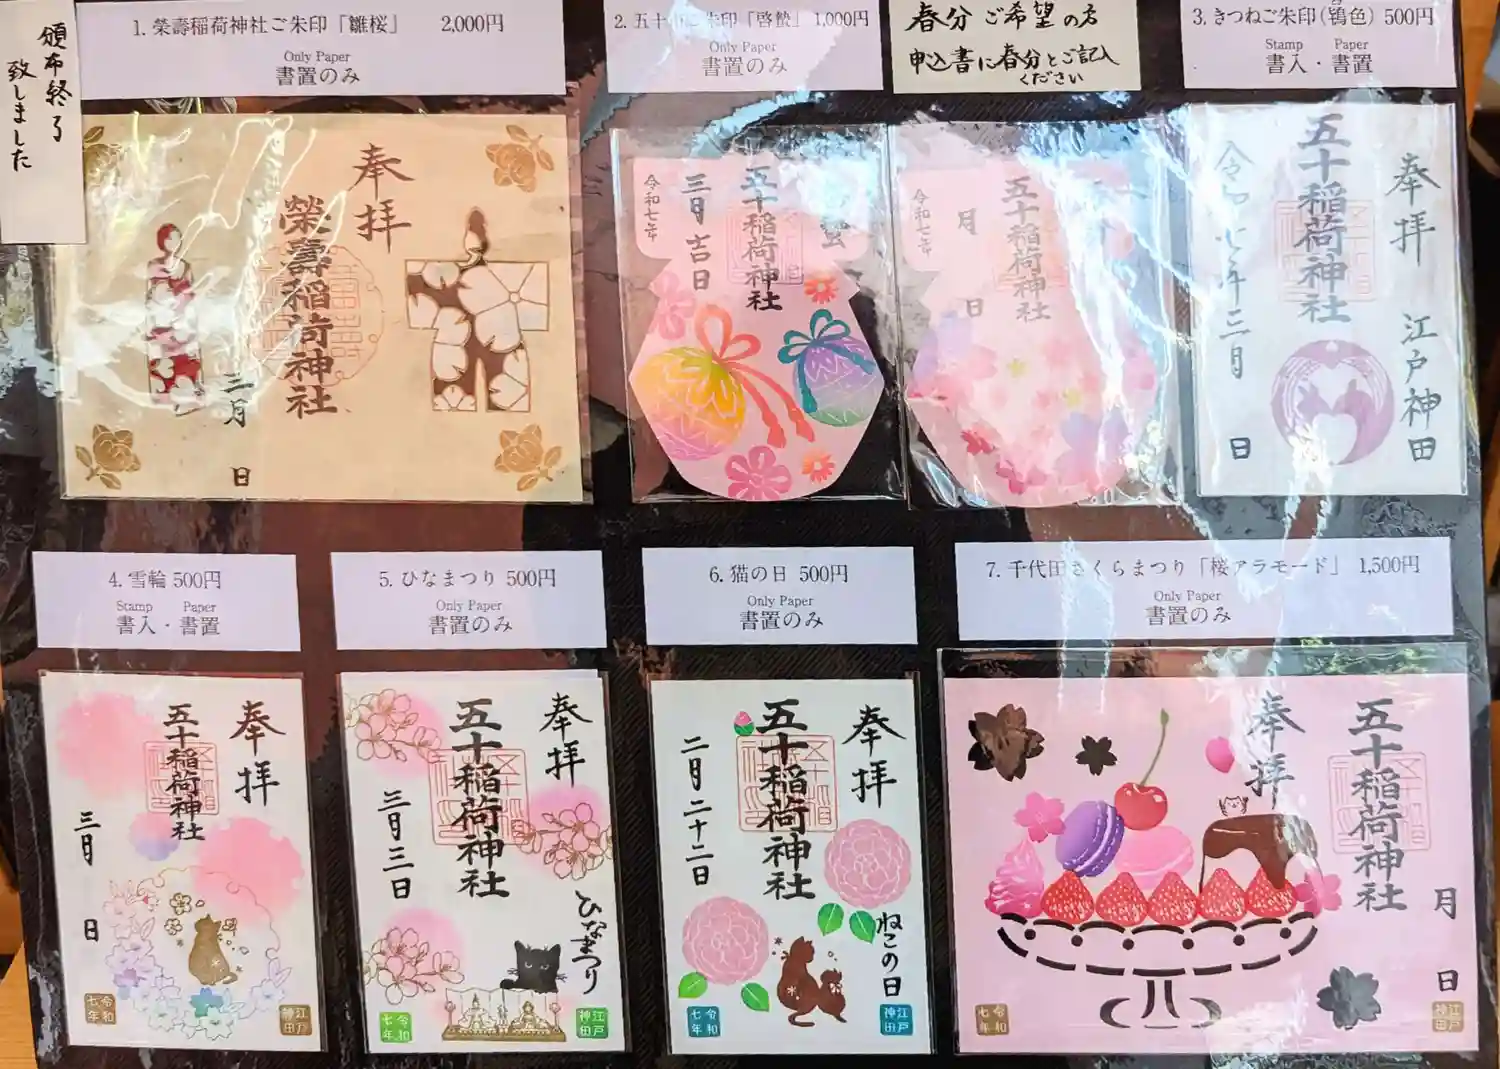 頒布終了
致しました
1. 榮壽稲荷神社ご朱印「雛桜」 2,000円
Only Paper
書置のみ
2. 五十稲ご朱印「啓蟄」 1,000円
Only Paper
書置のみ
春分ご希望の方
申込書に春分とご記入
ください
3. きつねご朱印(鴇色) 500円
Stamp Paper
書入・書置
奉拝
榮壽稲荷神社
三月 日
五十稲荷神社
三月吉日
令和七年
五十稲荷神社
月 日
令和七年
奉拝 江戸神田
五十稲荷神社
令和七年三月 日
4. 雪輪 500円
Stamp Paper
書入・書置
5. ひなまつり 500円
Only Paper
書置のみ
6. 猫の日 500円
Only Paper
書置のみ
7. 千代田さくらまつり「桜アラモード」 1,500円
Only Paper
書置のみ
奉拝
五十稲荷神社
三月 日
江戸神田
令和七年
奉拝
五十稲荷神社
三月三日
ひなまつり
江戸神田
令和七年
奉拝
五十稲荷神社
二月二十二日
ねこの日
江戸神田
令和七年
五十稲荷神社
奉拝
月 日
江戸神田
令和七年